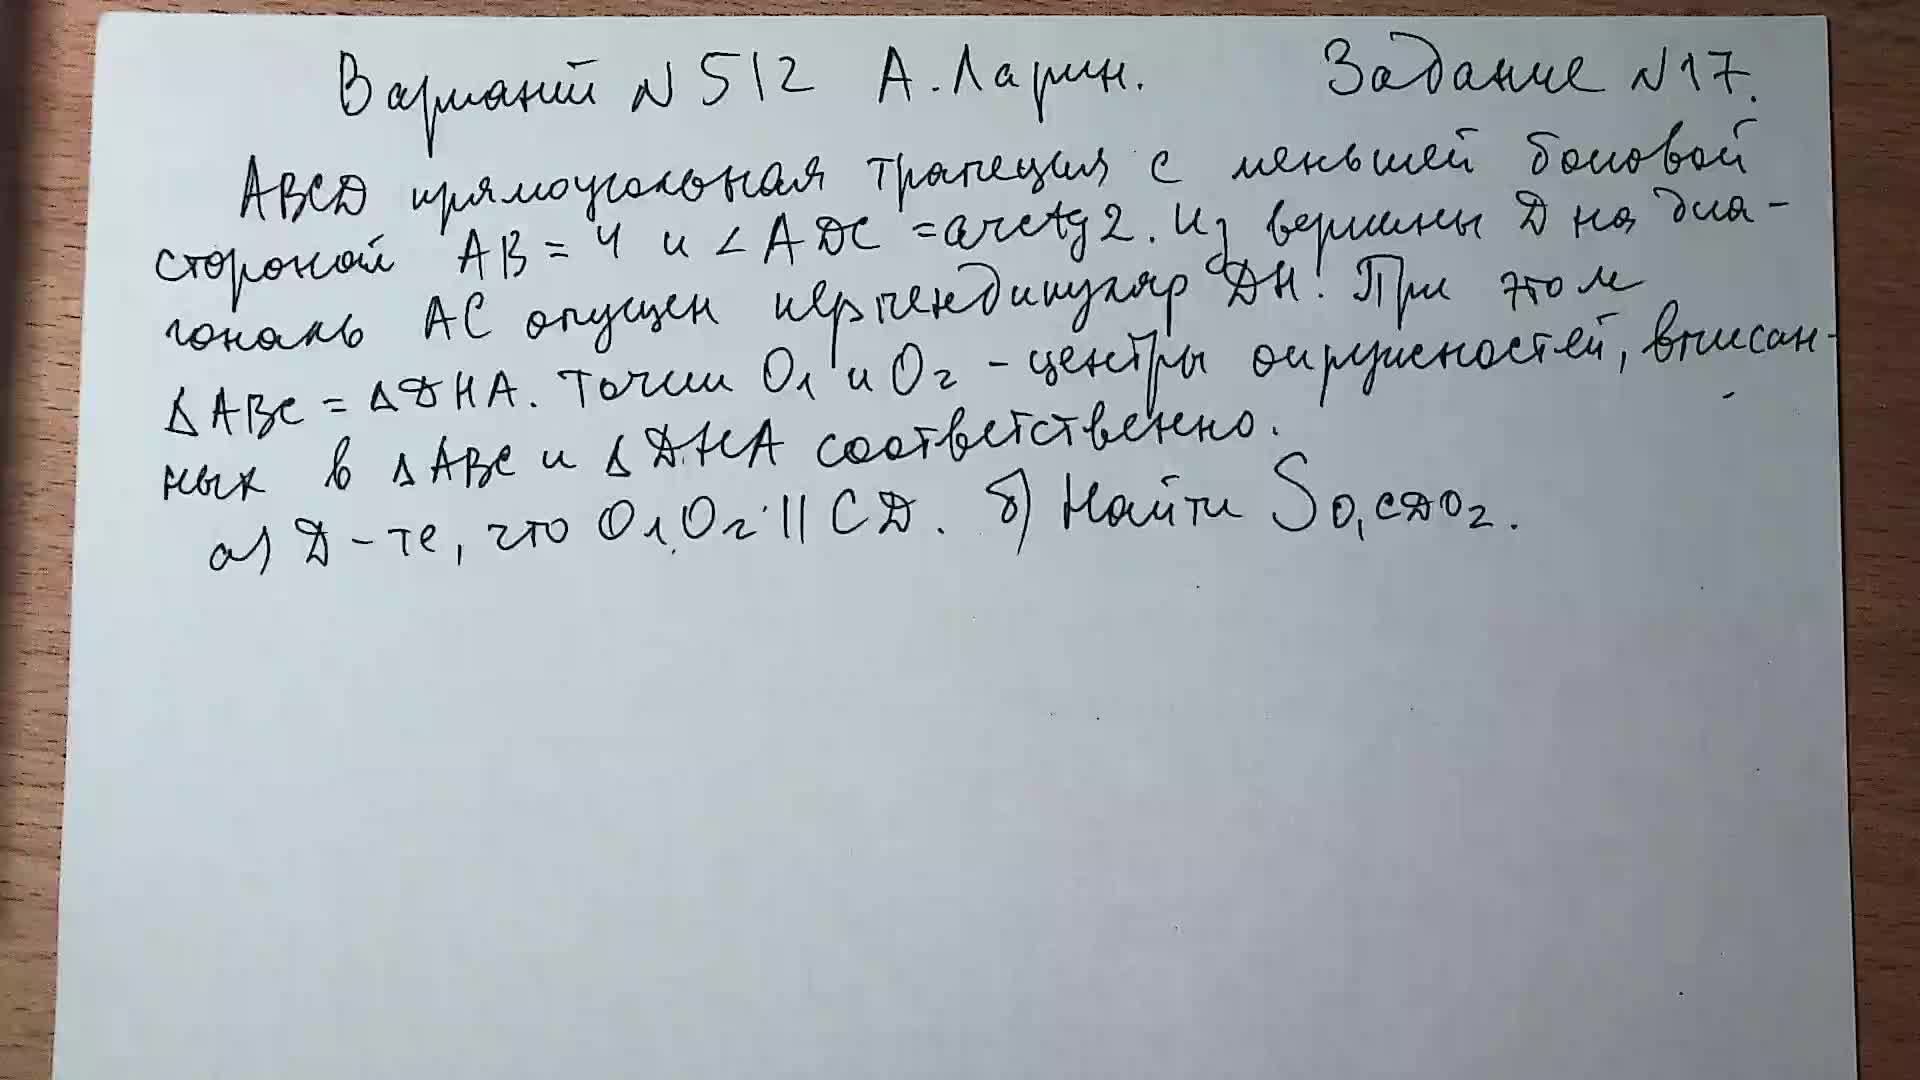 Вариант N 512 А. Ларин. Задание N17.
ABCD прямоугольная трапеция с меньшей боковой
стороной AB = 4 и ∠ADC = arctg2. Из вершины D на диа-
гональ AC опущен перпендикуляр DH. При этом
△ABC = △DHA. Точки O₁ и O₂ - центры окружностей, вписан-
ных в △ABC и △DHA соответственно.
а) Д-те, что O₁O₂ || CD. б) Найти S O₁CDO₂.